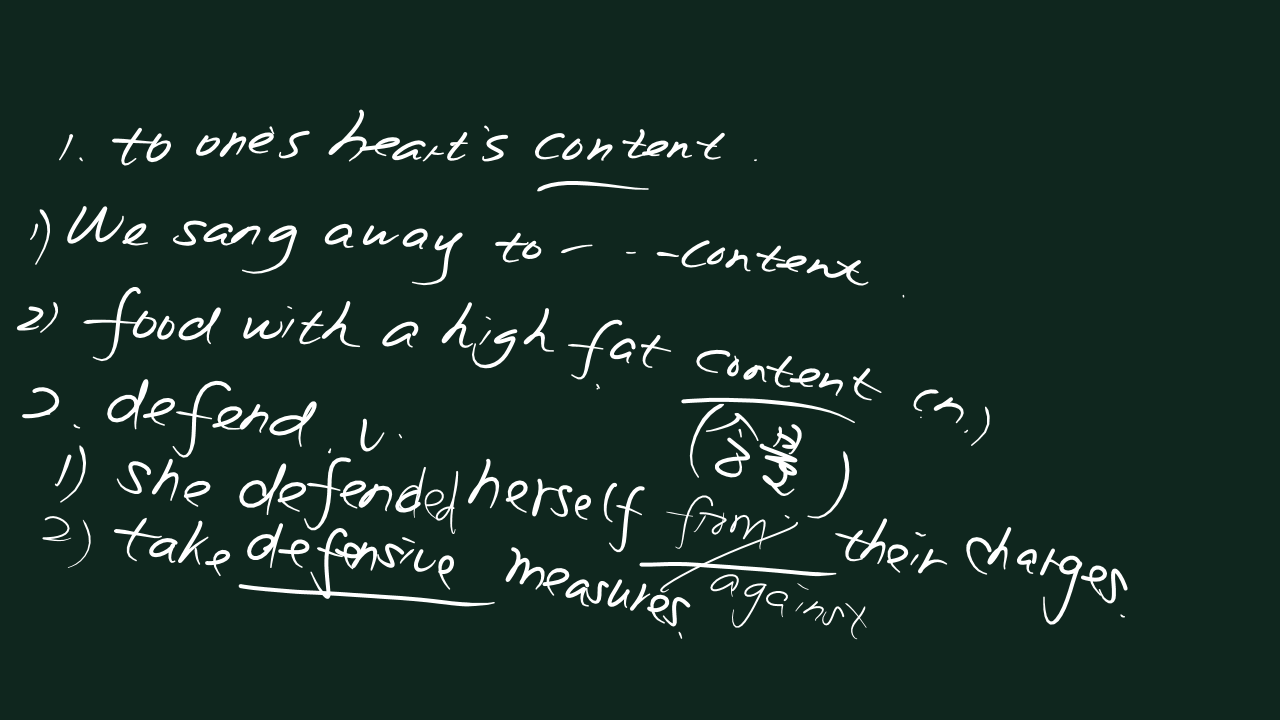 1. to one's heart's content.
1) We sang away to - - - -content.
2) food with a high fat content (n.)
(含量)
2. defend v.
1) she defended herself from their charges.
against
2) take defensive measures.